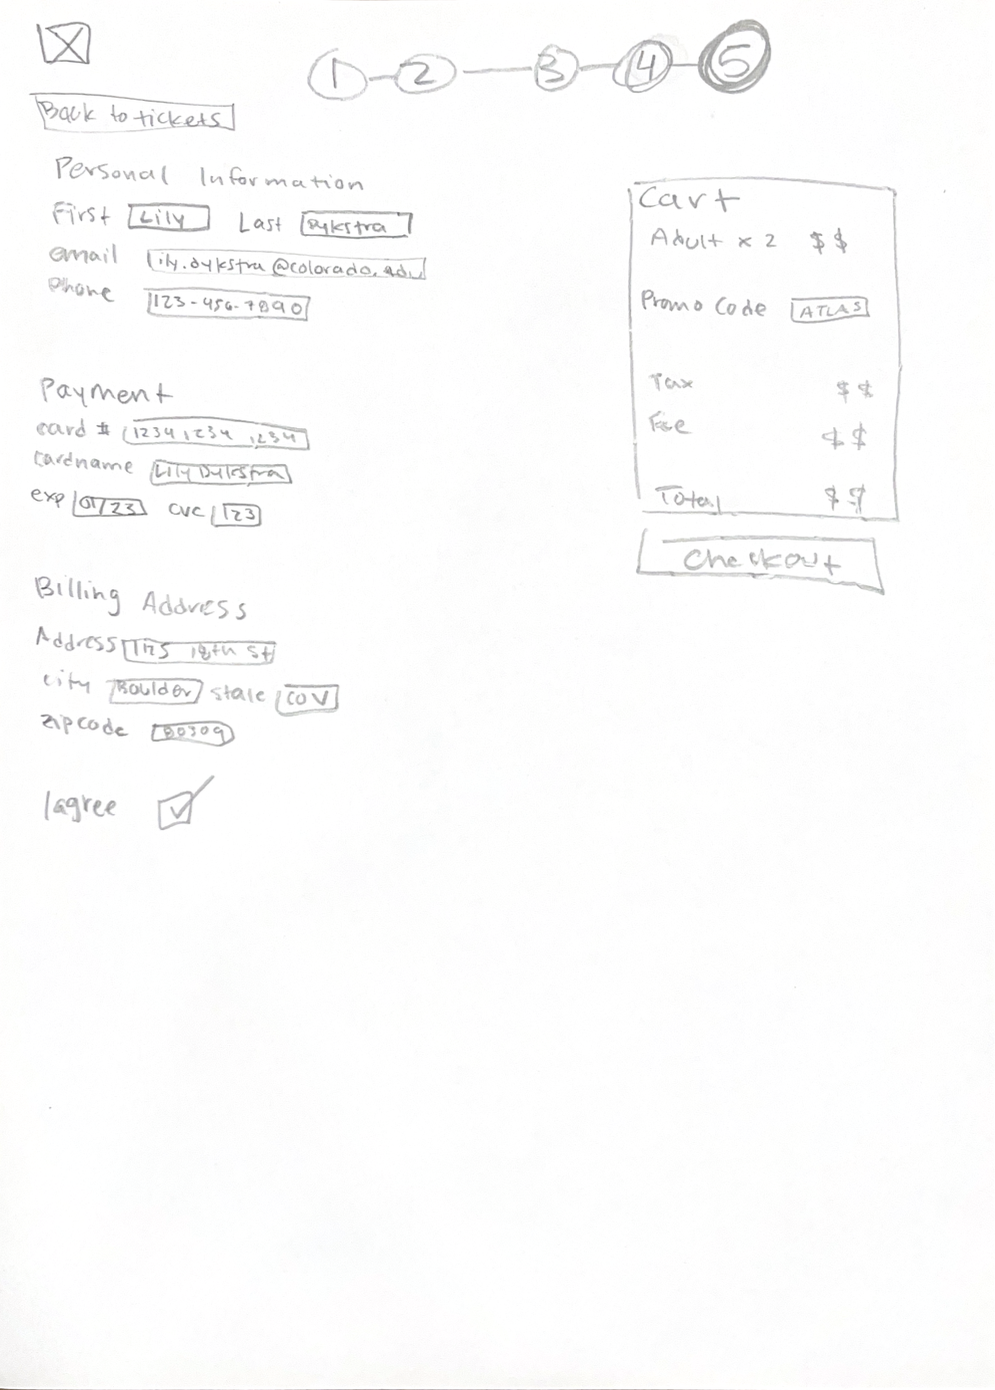 1 2 3 4 5
Back to tickets
Personal Information
First Lily Last Dykstra
email lily.dykstra@colorado.edu
Phone 123-456-7890
Payment
card # 1234 1234 1234
cardname Lily Dykstra
exp 01/23 cvc 123
Billing Address
Address 1125 18th St
city Boulder state
zipcode 80309
I agree
Cart
Adult x 2 $$
Promo Code ATLAS
Tax $$
Fee $$
Total $$
Checkout